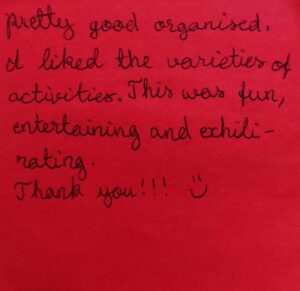 Pretty good organised.
I liked the varieties of
activities. This was fun,
entertaining and exhili-
rating.
Thank you!!! :)